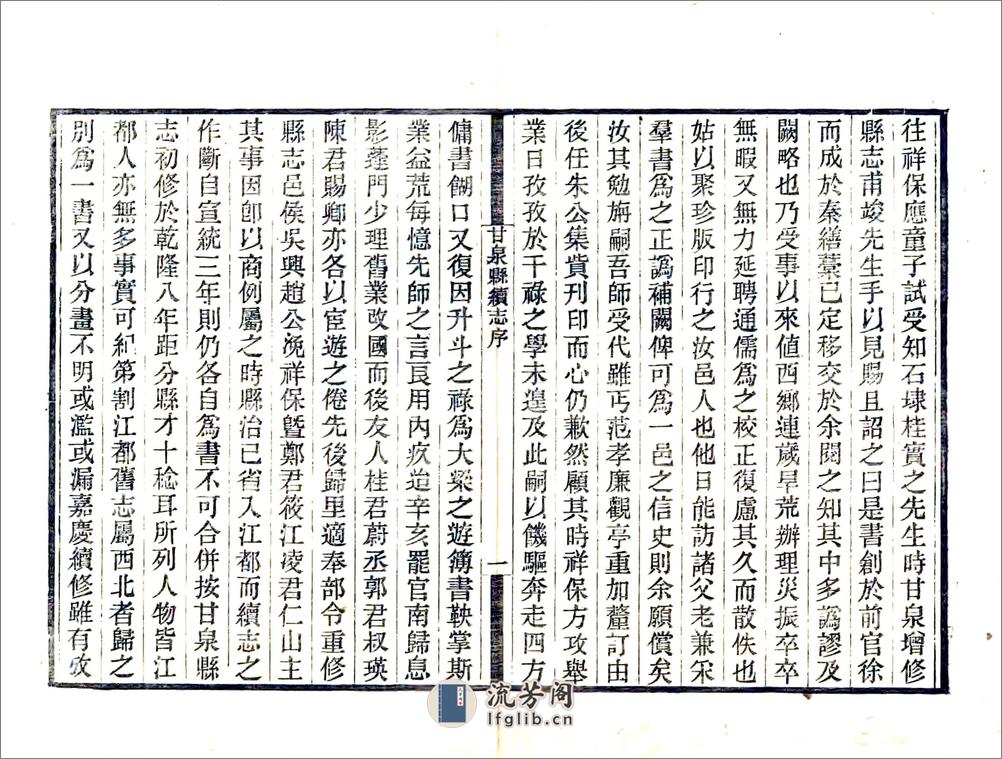 往祥保應童子試受知石埭桂實之先生時甘泉增修
縣志甫竣先生手以見賜且詔之曰是書創於前官徐
而成於秦繕藁已定移交於余閱之知其中多譌謬及
闕略也乃受事以來值西鄉連歲旱荒辦理災振卒卒
無暇又無力延聘通儒爲之校正復慮其久而散佚也
姑以聚珍版印行之汝邑人也他日能訪諸父老兼采
羣書爲之正譌補闕俾可爲一邑之信史則余願償矣
汝其勉旃嗣吾師受代雖丐范孝廉觀亭重加釐訂由
後任朱公集貲刊印而心仍歉然顧其時祥保方攻舉
業日孜孜於干祿之學未遑及此嗣以饑驅奔走四方
甘泉縣續志序
一
傭書餬口又復因升斗之祿爲大梁之遊簿書鞅掌斯
業益荒每憶先師之言良用內疚迨辛亥罷官南歸息
影蓬門少理舊業改國而後友人桂君蔚丞郭君叔瑛
陳君賜卿亦各以宦遊之倦先後歸里適奉部令重修
縣志邑侯吳興趙公浼祥保暨鄭君筱江凌君仁山主
其事因卽以商例屬之時縣治已省入江都而續志之
作斷自宣統三年則仍各自爲書不可合併按甘泉縣
志初修於乾隆八年距分縣才十稔耳所列人物皆江
都人亦無多事實可紀第割江都舊志屬西北者歸之
別爲一書又以分畫不明或濫或漏嘉慶續修雖有攷
流芳阁
lfglib.cn